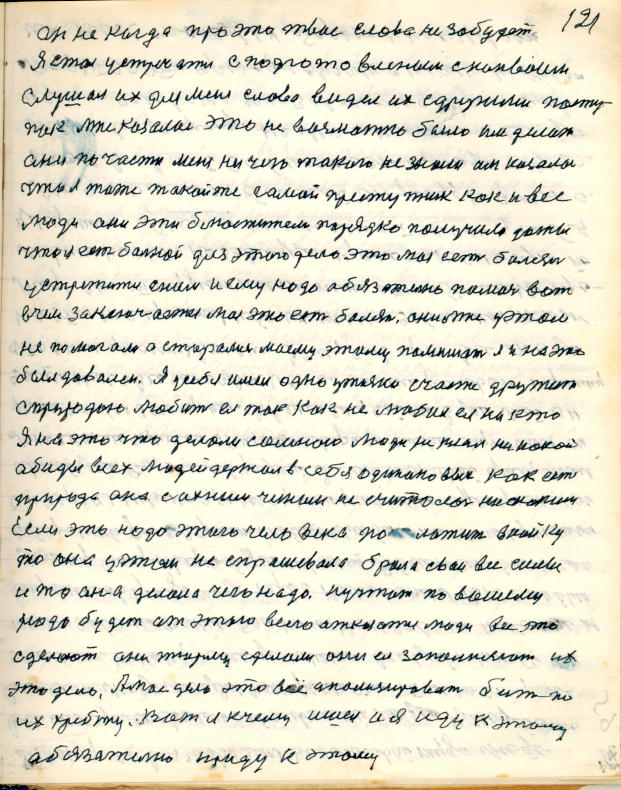 121
он не когда про это твое слова не забудет
Я стал устречати с подготовленым сконвоем
Слушал их для меня слово видел их сдружили посту-
пок мне казалос это не возможно было им делат
они по части меня ни чего такого не знали им казалос
что я тоже такой же самой преступник как и все
люди они эти блюстители порядка получили доты
что я ест болной для этого дело это моя ест болезн
устретити сним и ему надо обязателно помоч вот
вчем заключается мая это ест болян, они же у этом
не помогали а старалися моему этому помишат я и на это
был довален. Я у себя имел одно счасте дружит
сприродою любит ея так как не любил ея ни кто
Я на это что делали самною люди не имел никакой
абиды всех людей держал в себя одинаковых как ест
природа она сахним чином не считалос нисколки
Если это надо этого человека положит в койку
то она у этом не спрашевала брала свои все силы
и то она делала чего надо. пустат по вашему
надо будет от этого всего отказати люди все это
сделают они тюрму сделали они ея заполняют их
это дело, А мое дело это всё анолизироват быт по
их требту. Вот я к чему шел и я иду к этому
обязателно приду к этому